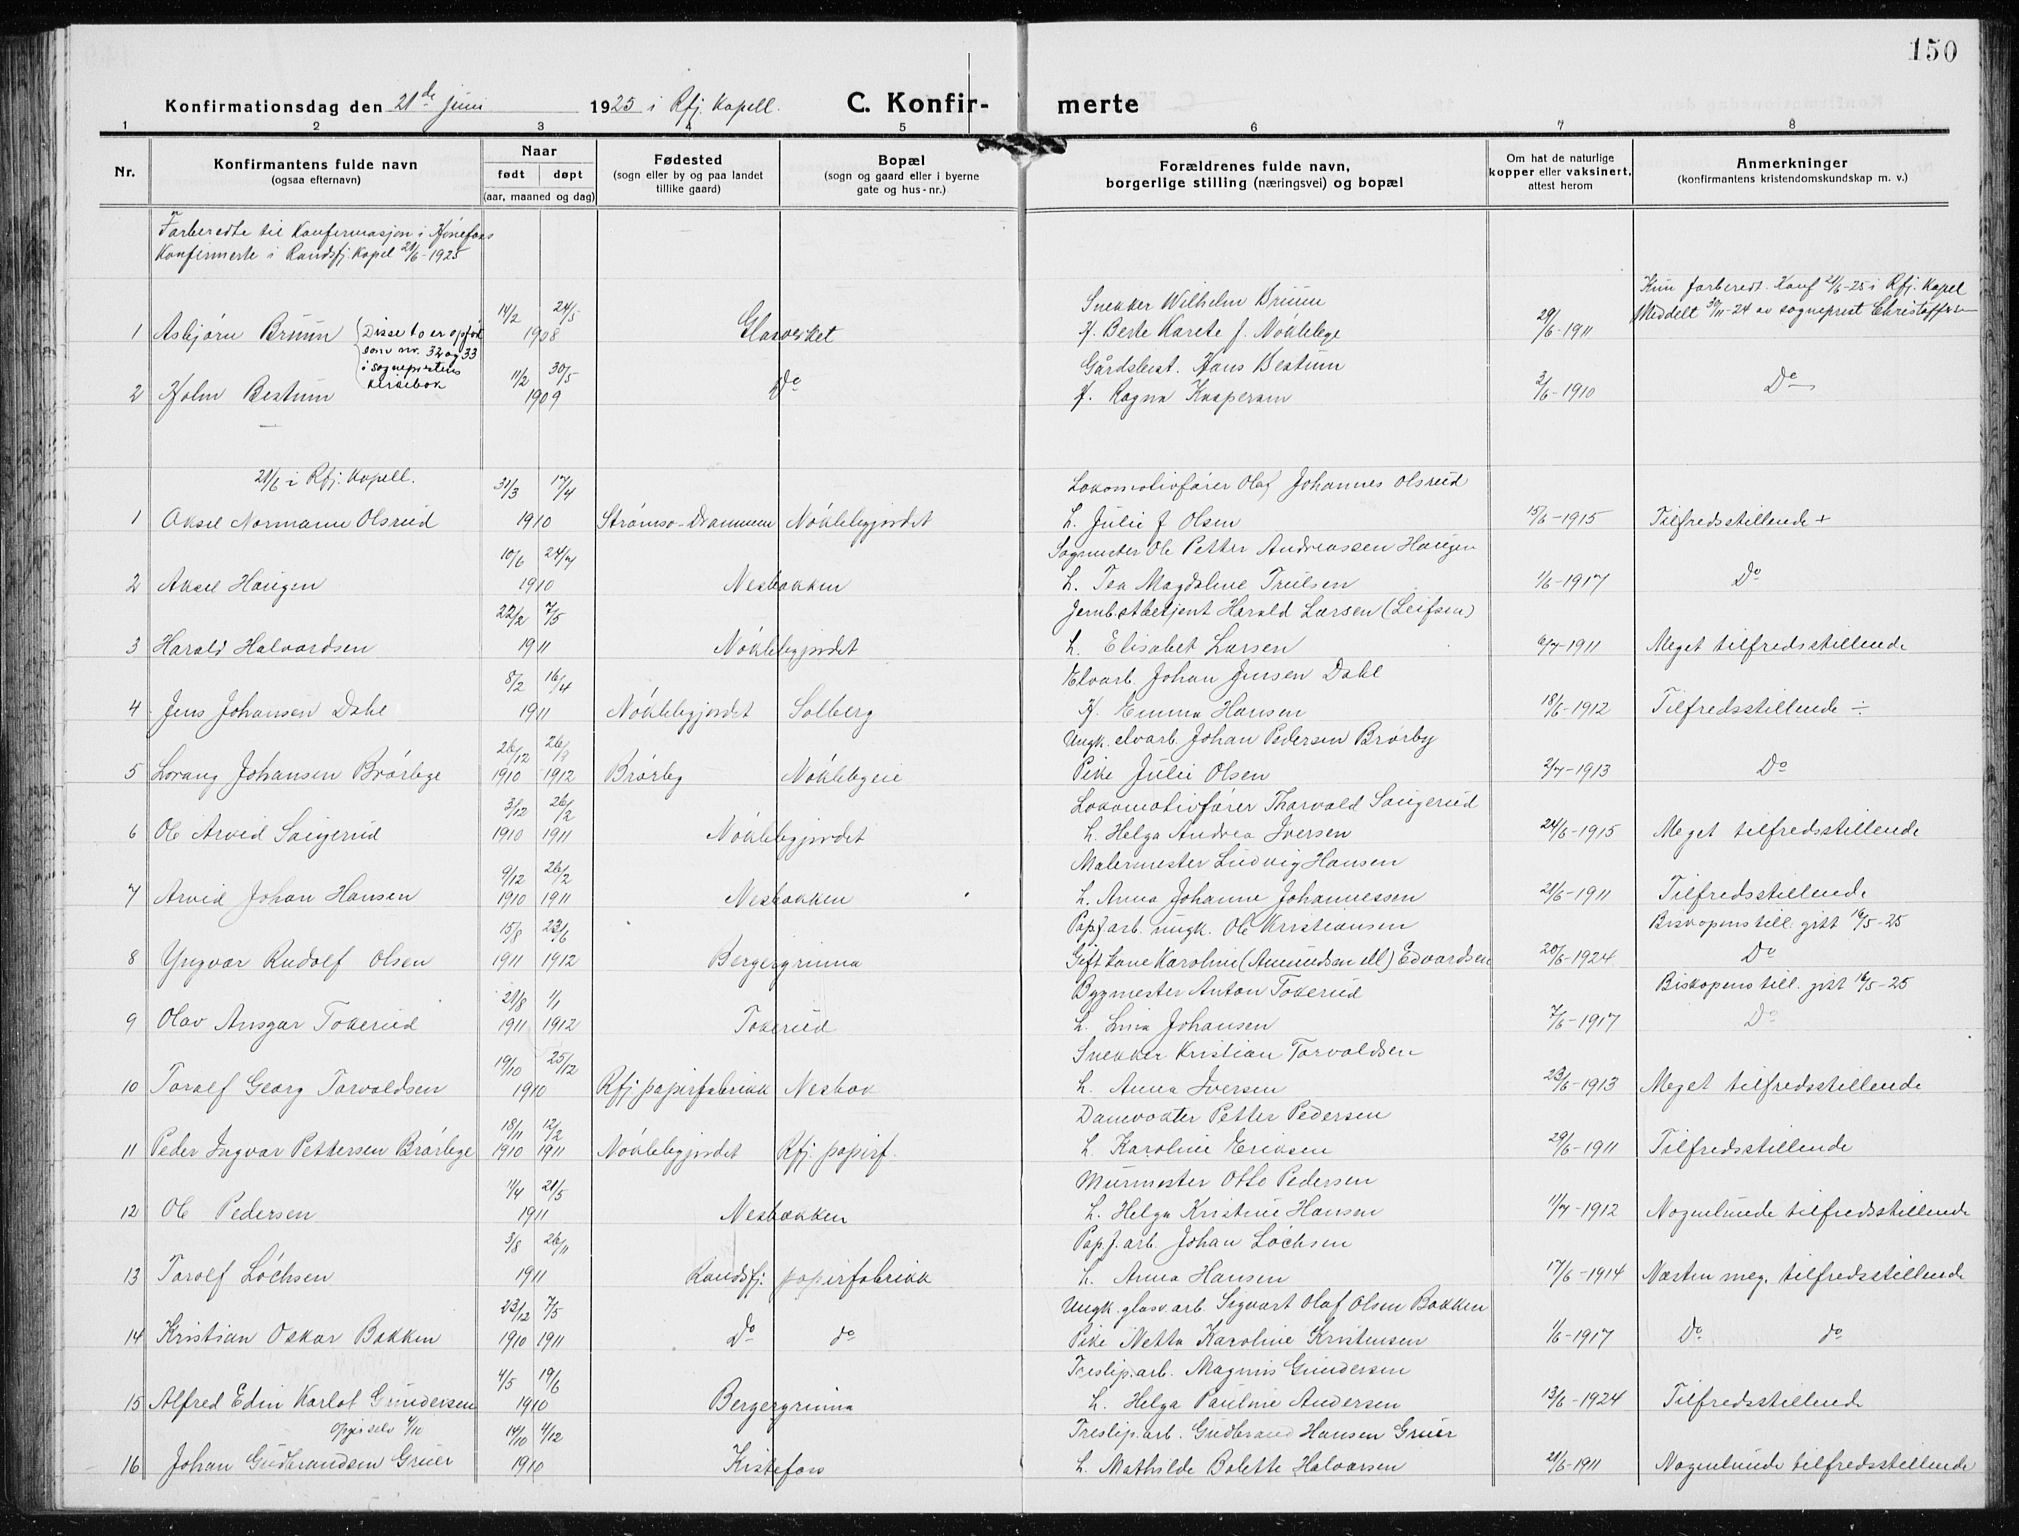 150
Konfirmationsdag den 21de juni 1925 i Rfj. Kapell. C. Konfir- merte
1 2 3 4 5 6 7 8
Nr. Konfirmantens fulde navn (ogsaa efternavn) Naar født døpt (aar, maaned og dag) Fødested (sogn eller by og paa landet tillike gaard) Bopæl (sogn og gaard eller i byerne gate og hus-nr.) Forældrenes fulde navn, borgerlige stilling (næringsvei) og bopæl Om hat de naturlige kopper eller vaksinert, attest herom Anmerkninger (konfirmantens kristendomskundskap m. v.)
Forberedte til Konfirmasjon i
Konfirmerte i Randsfj. Kapel 21/6-1925
14/2 24/5 Snekker Wilhelm Bruun Kun forberedt. Konf 21/6-25 i Rfj. Kapel
1 Asbjørn Bruun (Disse to er opført som nr. 32 og 33 i sogneprestens kirkebok 1908 Glasverket H. Berte Karete f. Nøklebye 29/6-1911 Meddelt 30/11-24 av sogneprest Christoffersen
11/2 30/5 Gårdsbest. Hans Bestum
2 Holm Bestum 1909 Do f. Ragna Kaspersen 3/6-1910 Do
21/6 i Rfj. Kapell. 31/3 17/4 Lokomotivfører Olaf Johannes Olsrud
1 Aksel Normann Olsrud 1910 Strømsø-Drammen Nøklebygjordet h. Julie f Olsen 15/6-1915 Tilfredsstillende +
10/6 24/7 Sagmester Ole Petter Andreassen Haugen
2 Aksel Haugen 1910 Nesbakken h. Tea Magdalene Truelsen 1/6-1917 Do
22/2 7/5 Jernb.stbetjent Harald Larsen (Leifsen)
3 Harald Halvardsen 1911 Nøklebygjordet h. Elisabet Larsen 6/7-1911 Meget tilfredsstillende
8/2 16/4 Elvarb. Johan Jensen Dahl
4 Jens Johansen Dahl 1911 Nøklebygjordet Solberg H. Emma Hansen 18/6-1912 Tilfredsstillende ÷
26/12 Ungk. elvarb. Johan Pedersen Brørby
5 Lorang Johansen Brørbye 1910 1912 Brørby Nøklebyeie Pike Julie Olsen 2/7-1913 Do
3/12 26/2 Lokomotivfører Thorvald Saugerud
6 Ole Arvid Saugerud 1910 1911 Nøklebygjordet h. Helga Andrea Iversen 24/6-1915 Meget tilfredsstillende
9/12 26/2 Malermester Ludvig Hansen
7 Arvid Johan Hansen 1910 1911 Nesbakken h. Anna Johanne Johannessen 21/6-1911 Tilfredsstillende
15/8 23/6 Papf arb. ungk. Ole Kristiansen Biskopens till. gitt 16/5-25
8 Yngvar Rudolf Olsen 1911 1912 Bergergrinna Gift Love Karoline (Amundsen ell) Edvardsen 20/6-1924 Do
21/8 1/1 Bygmester Anton Tokerud Biskopens till. gitt 16/5-25
9 Olav Ansgar Tokerud 1911 1912 Tokerud h. Lina Johansen 7/6-1917 Do
19/10 25/12 Snekker Kristian Torvaldsen
10 Toralf Georg Torvaldsen 1910 Rfj papirfabrikk Nesbak h. Anna Iversen 23/6-1913 Meget tilfredsstillende
18/11 12/2 Damvokter Petter Pedersen
11 Peder Ingvar Pettersen Brørbye 1910 1911 Nøklebygjordet Rfj. papirf. h. Karoline Eriksen 29/6-1911 Tilfredsstillende
11/4 21/5 Murmester Otto Pedersen
12 Ole Pedersen 1911 Nesbakken h. Helga Kristine Hansen 11/7-1912 Nogenlunde tilfredsstillende
3/8 26/11 Pap.f. arb. Johan Løchsen
13 Toralf Løchsen 1911 Randsfj: papirfabrikk h. Anna Hansen 17/6-1914 Næsten meg. tilfredsstillende
23/12 7/5 Ungk. glasv.arb. Sigvart Olaf Olsen Bakken
14 Kristian Oskar Bakken 1910 1911 Do do Pike Netta Karoline Kristensen 1/6-1917 Do do
4/5 19/6 Treslip.arb. Magnus Gundersen
15 Alfred Edin Karlot Gundersen 1910 Bergergrinna h. Helga Pauline Andersen 13/6-1924 Tilfredsstillende
opgis selv 4/10 14/10 4/12 Treslip.arb. Gudbrand Hansen Gruer
16 Johan Gudbrandsen Gruer 1910 Kistefoss h. Mathilde Bolette Halvorsen 21/6-1911 Nogenlunde tilfredsstillende